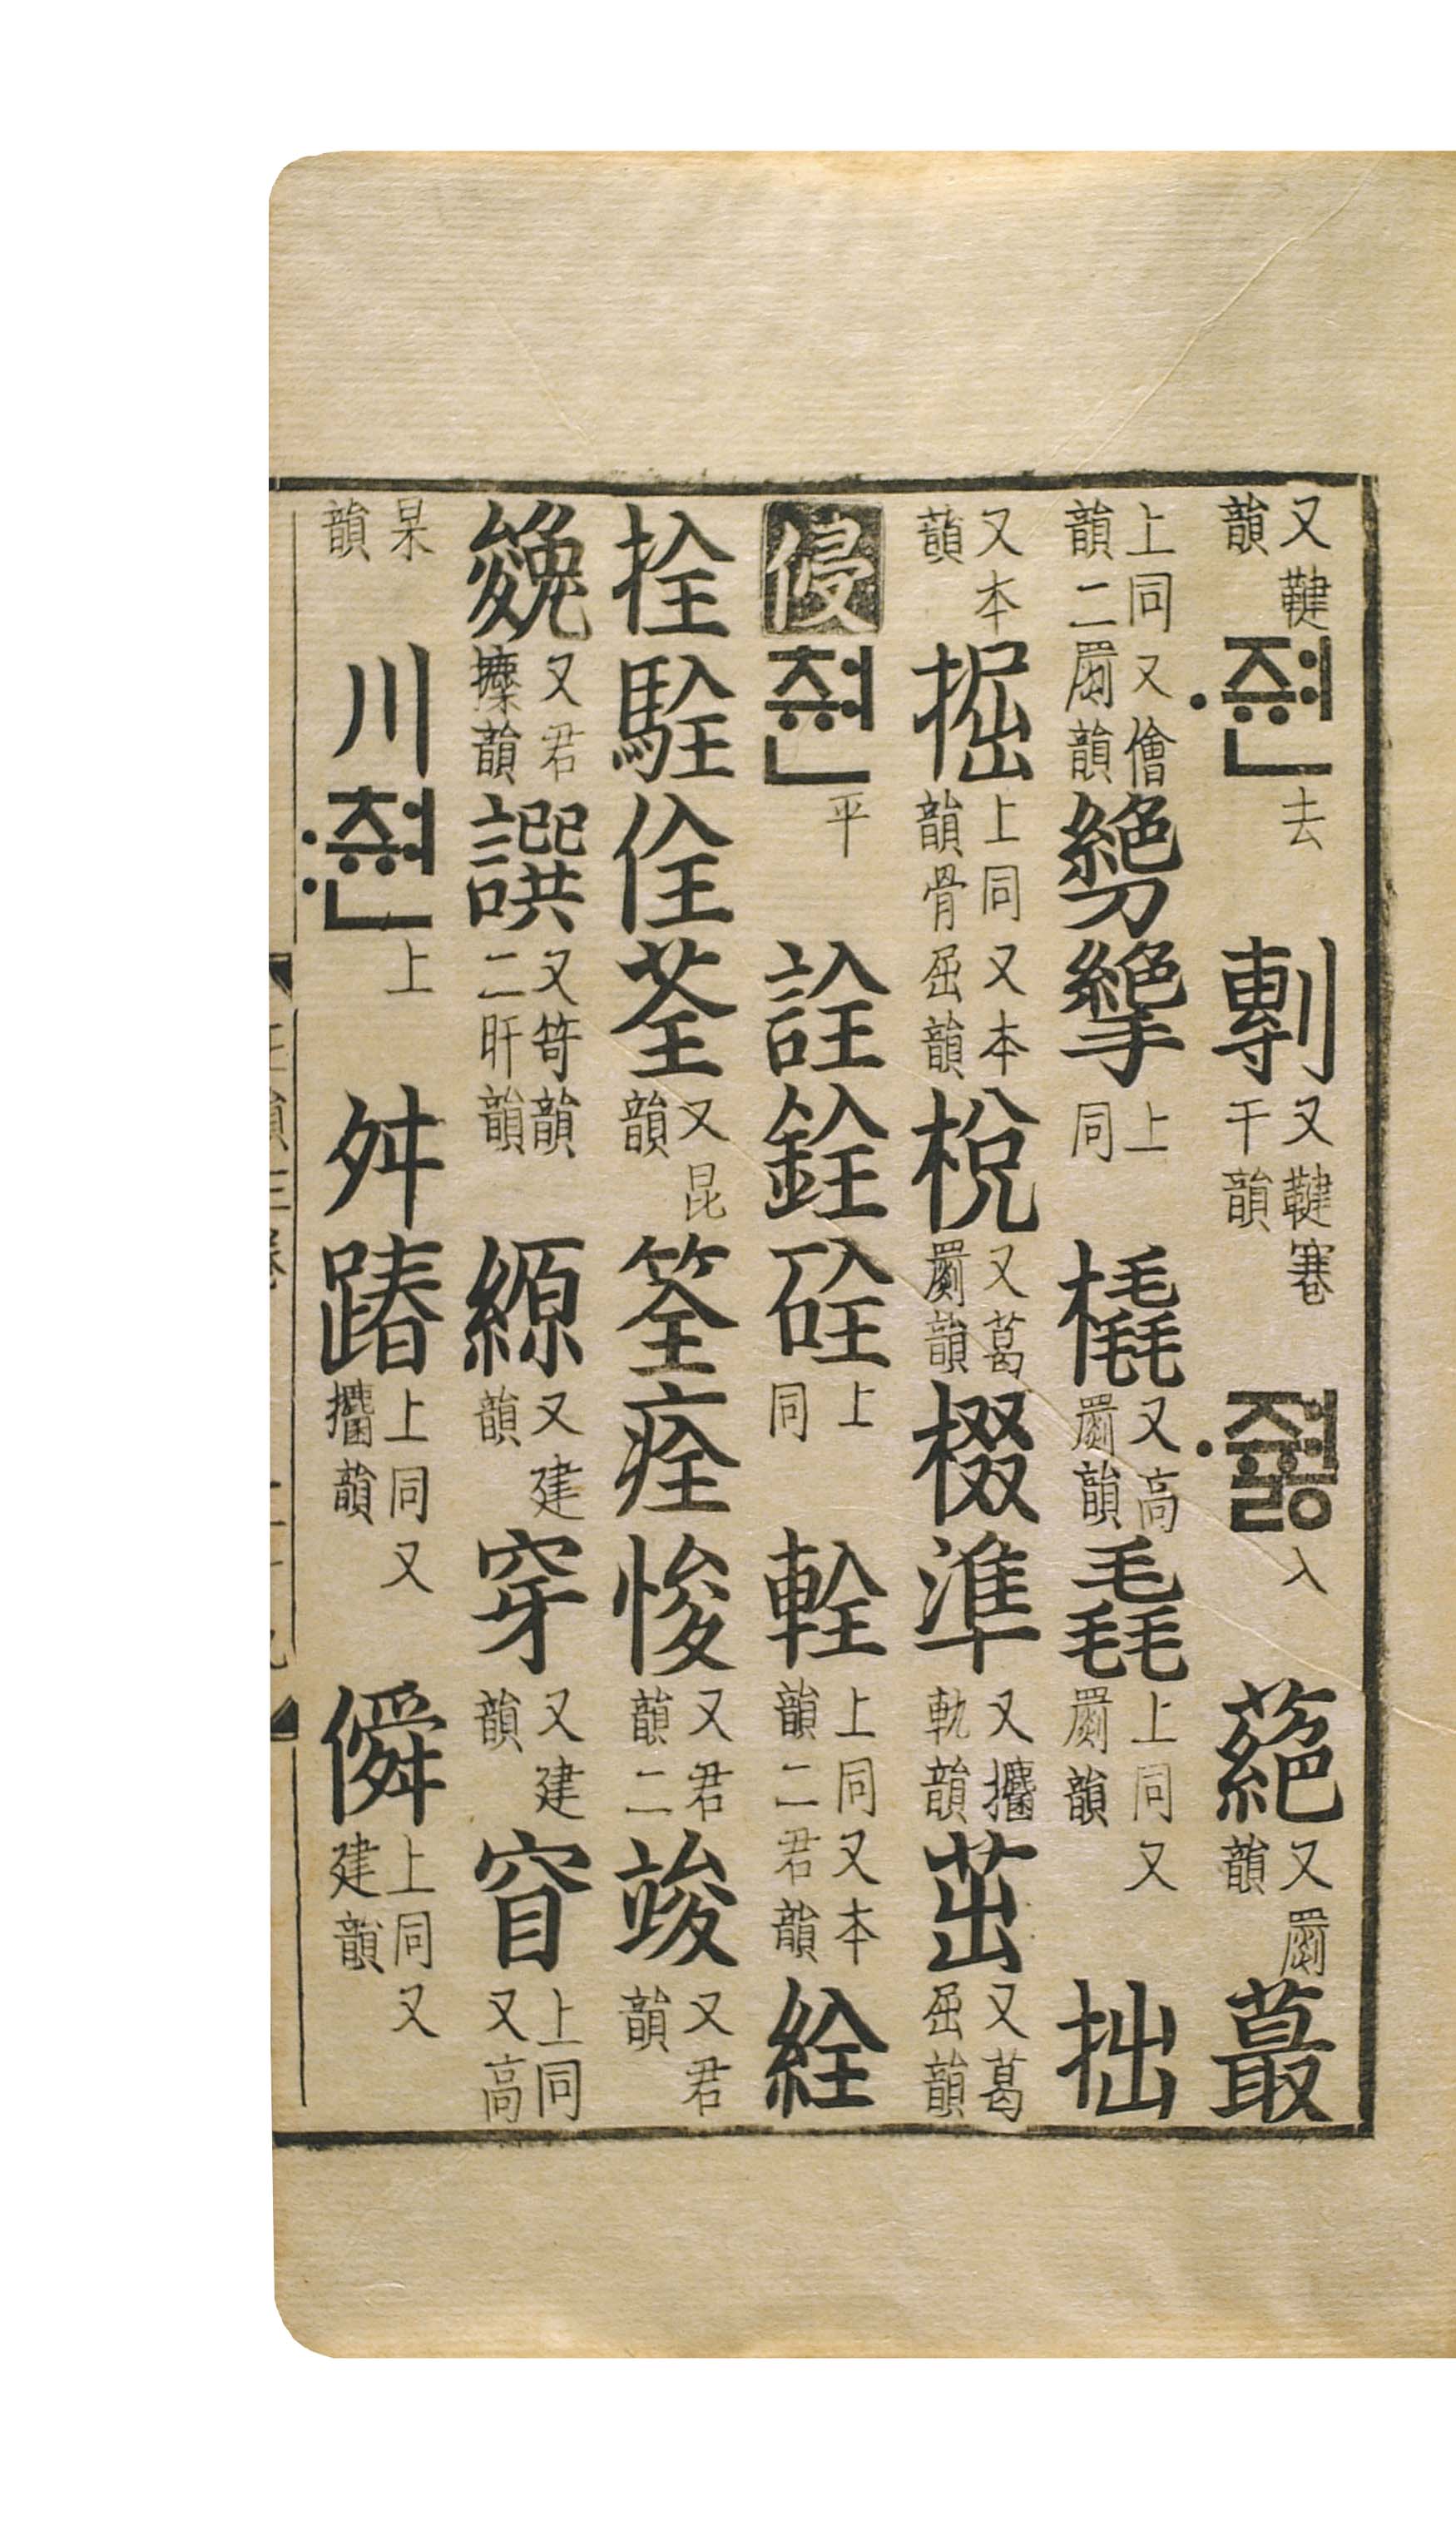 又鞬韻 〮ᄌᆑᆫ 去 剸 又鞬寋干韻 〮ᄌᆑᇙ 入 蕝 又罽韻 蕞
上同又儈韻二罽韻 上同 橇 又高罽韻 毳 上同又罽韻 拙
又本韻 掘 上同又本韻骨屈韻 梲 又葛罽韻 棳 準 又攟軌韻 茁 又葛屈韻
侵 ᄎᆑᆫ 平 詮 銓 硂 上同 輇 上同又本韻二君韻 絟
拴 駩 佺 荃 又昆韻 筌 痊 悛 又君韻二 竣 又君韻
㕙 又君韻 譔 又笴韻二旰韻 縓 又建韻 穿 又建韻 窅 上同又高
杲韻 川 〯ᄎᆑᆫ 上 舛 踳 上同又攟韻 僢 上同又建韻